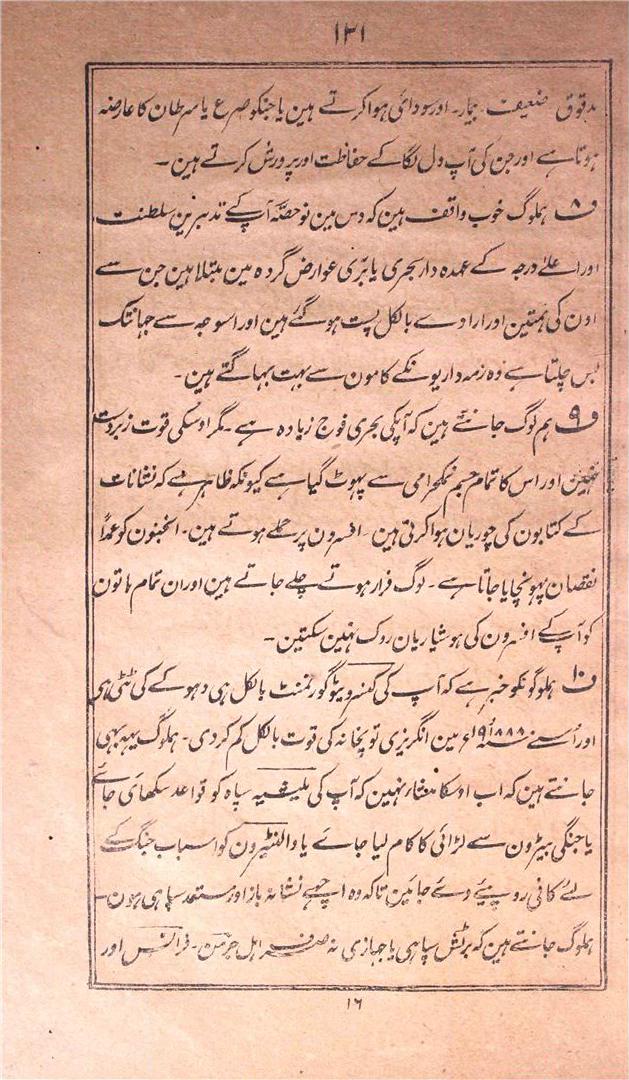 ۱۲۱
مدقوق ضعیف۔ بیمار۔ اور سودائی ہوا کرتے ہین یا جنکو صرع یا سرطان کا عارضہ
ہوتا ہے اور جن کی آپ دل لگا کے حفاظت اور پرورش کرتے ہین۔
ف۸ ہملوگ خوب واقف ہین کہ دس مین نو حصّہ آپ کے مدبرین سلطنت
اور اعلےٰ درجہ کے عہدہ دار بحری یا برّی عوارض گردہ مین مبتلا ہین جن سے
اون کی ہمتین اور ارادے بالکل پست ہو گئے ہین اور اسوجہ سے جہانتک
بس چلتا ہے وہ زمہ داریونکے کامون سے بہت بہاگتے ہین۔
ف۹ ہم لوگ جانتے ہین کہ آپکی بحری فوج زیادہ ہے۔ مگر اوسکی قوت زبردست
نہین اور اس کا تمام جسم نمکحرامی سے پہوٹ گیا ہے کیونکہ ظاہر ہے کہ نشانات
کے کتابون کی چوریان ہوا کرتی ہین۔ افسرون پر حملے ہوتے ہین۔ انجنون کو عمداً
نقصان پہونچایا جاتا ہے۔ لوگ فرار ہوتے چلے جاتے ہین اور ان تمام باتون
کو آپ کے افسرون کی ہوشیاریان روک نہین سکتین۔
ف۱۰ ہملوگونکو خبر ہے کہ آپ کی کنسرویٹو گورنمنٹ بالکل ہی دہوکے کی ٹٹی ہی
اور اُسنے سنہ ۱۸۸۸ مین انگریزی توپخانہ کی قوت بالکل کم کر دی۔ ہملوگ یہہ بہی
جانتے ہین کہ اب اوسکا منشاء نہین کہ آپ کی ملیشیہ سپاہ کو قواعد سکھائی جائے
یا جنگی بیڑون سے لڑائی کا کام لیا جائے یا والنٹیرون کو اسباب جنگ کے
لئے کافی روپئے دئے جائین تاکہ وہ اچھے نشانہ باز اور مستعد سپاہی ہون۔
ہملوگ جانتے ہین کہ برٹش سپاہی یا جہازی نہ صرف اہل جرمن۔ فرانس اور
۱۶